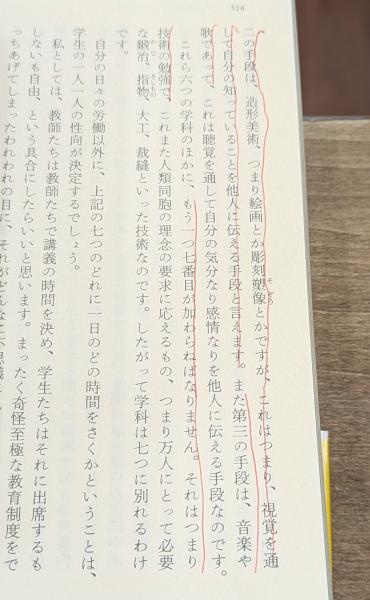 536
二の手段は、造形美術、つまり絵画とか彫刻塑像とかですが、これはつまり、視覚を通
して自分の知っていることを他人に伝える手段と言えます。また第三の手段は、音楽や
歌であって、これは聴覚を通して自分の気分なり感情なりを他人に伝える手段なのです。
これら六つの学科のほかに、もう一つ七番目が加わらねばなりません。それはつまり
技術の勉強で、これまた人類同胞の理念の要求に応えるもの、つまり万人にとって必要
な鍛冶、指物、大工、裁縫といった技術なのです。したがって学科は七つに別れるわけ
です。
自分の日々の労働以外に、上記の七つのどれに一日のどの時間をさくかということは、
学生の一人一人の性向が決定するでしょう。
私としては、教師たちは教師たちで講義の時間を決め、学生たちはそれに出席するも
しないも自由、という具合にしたらいいと思います。まったく奇怪至極な教育制度をで
っちあげてしまったわれわれの目に、それが